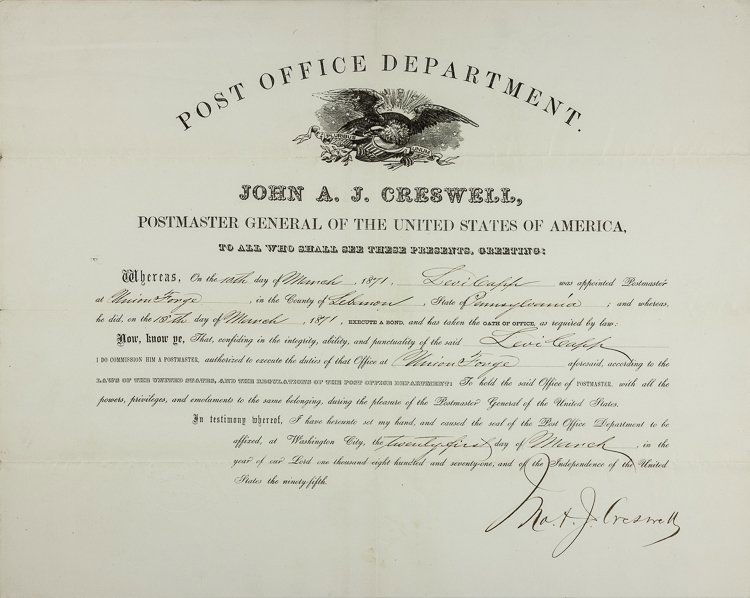 POST OFFICE DEPARTMENT.
JOHN A. J. CRESWELL,
POSTMASTER GENERAL OF THE UNITED STATES OF AMERICA,
TO ALL WHO SHALL SEE THESE PRESENTS, GREETING:
Whereas, On the 10th day of March, 1871, Levi Capp was appointed Postmaster
at Union Forge, in the County of Lebanon, State of Pennsylvania; and whereas,
he did, on the 18th day of March, 1871, EXECUTE A BOND, and has taken the OATH OF OFFICE, as required by law:
Now, know ye, That, confiding in the integrity, ability, and punctuality of the said Levi Capp
I DO COMMISSION HIM A POSTMASTER, authorized to execute the duties of that Office at Union Forge aforesaid, according to the
LAWS OF THE UNITED STATES, AND THE REGULATIONS OF THE POST OFFICE DEPARTMENT: To hold the said Office of POSTMASTER, with all the
powers, privileges, and emoluments to the same belonging, during the pleasure of the Postmaster General of the United States.
In testimony whereof, I have hereunto set my hand, and caused the seal of the Post Office Department to be
affixed, at Washington City, the twenty first day of March, in the
year of our Lord one thousand eight hundred and seventy-one, and of the Independence of the United
States the ninety-fifth.
Jno. A. J. Creswell